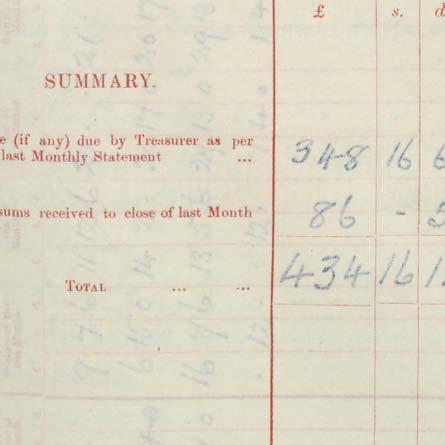 £ s. d
SUMMARY.
e (if any) due by Treasurer as per
last Monthly Statement ... 348 16 6
sums received to close of last Month 86 - 5
TOTAL ... ... 434 16 1